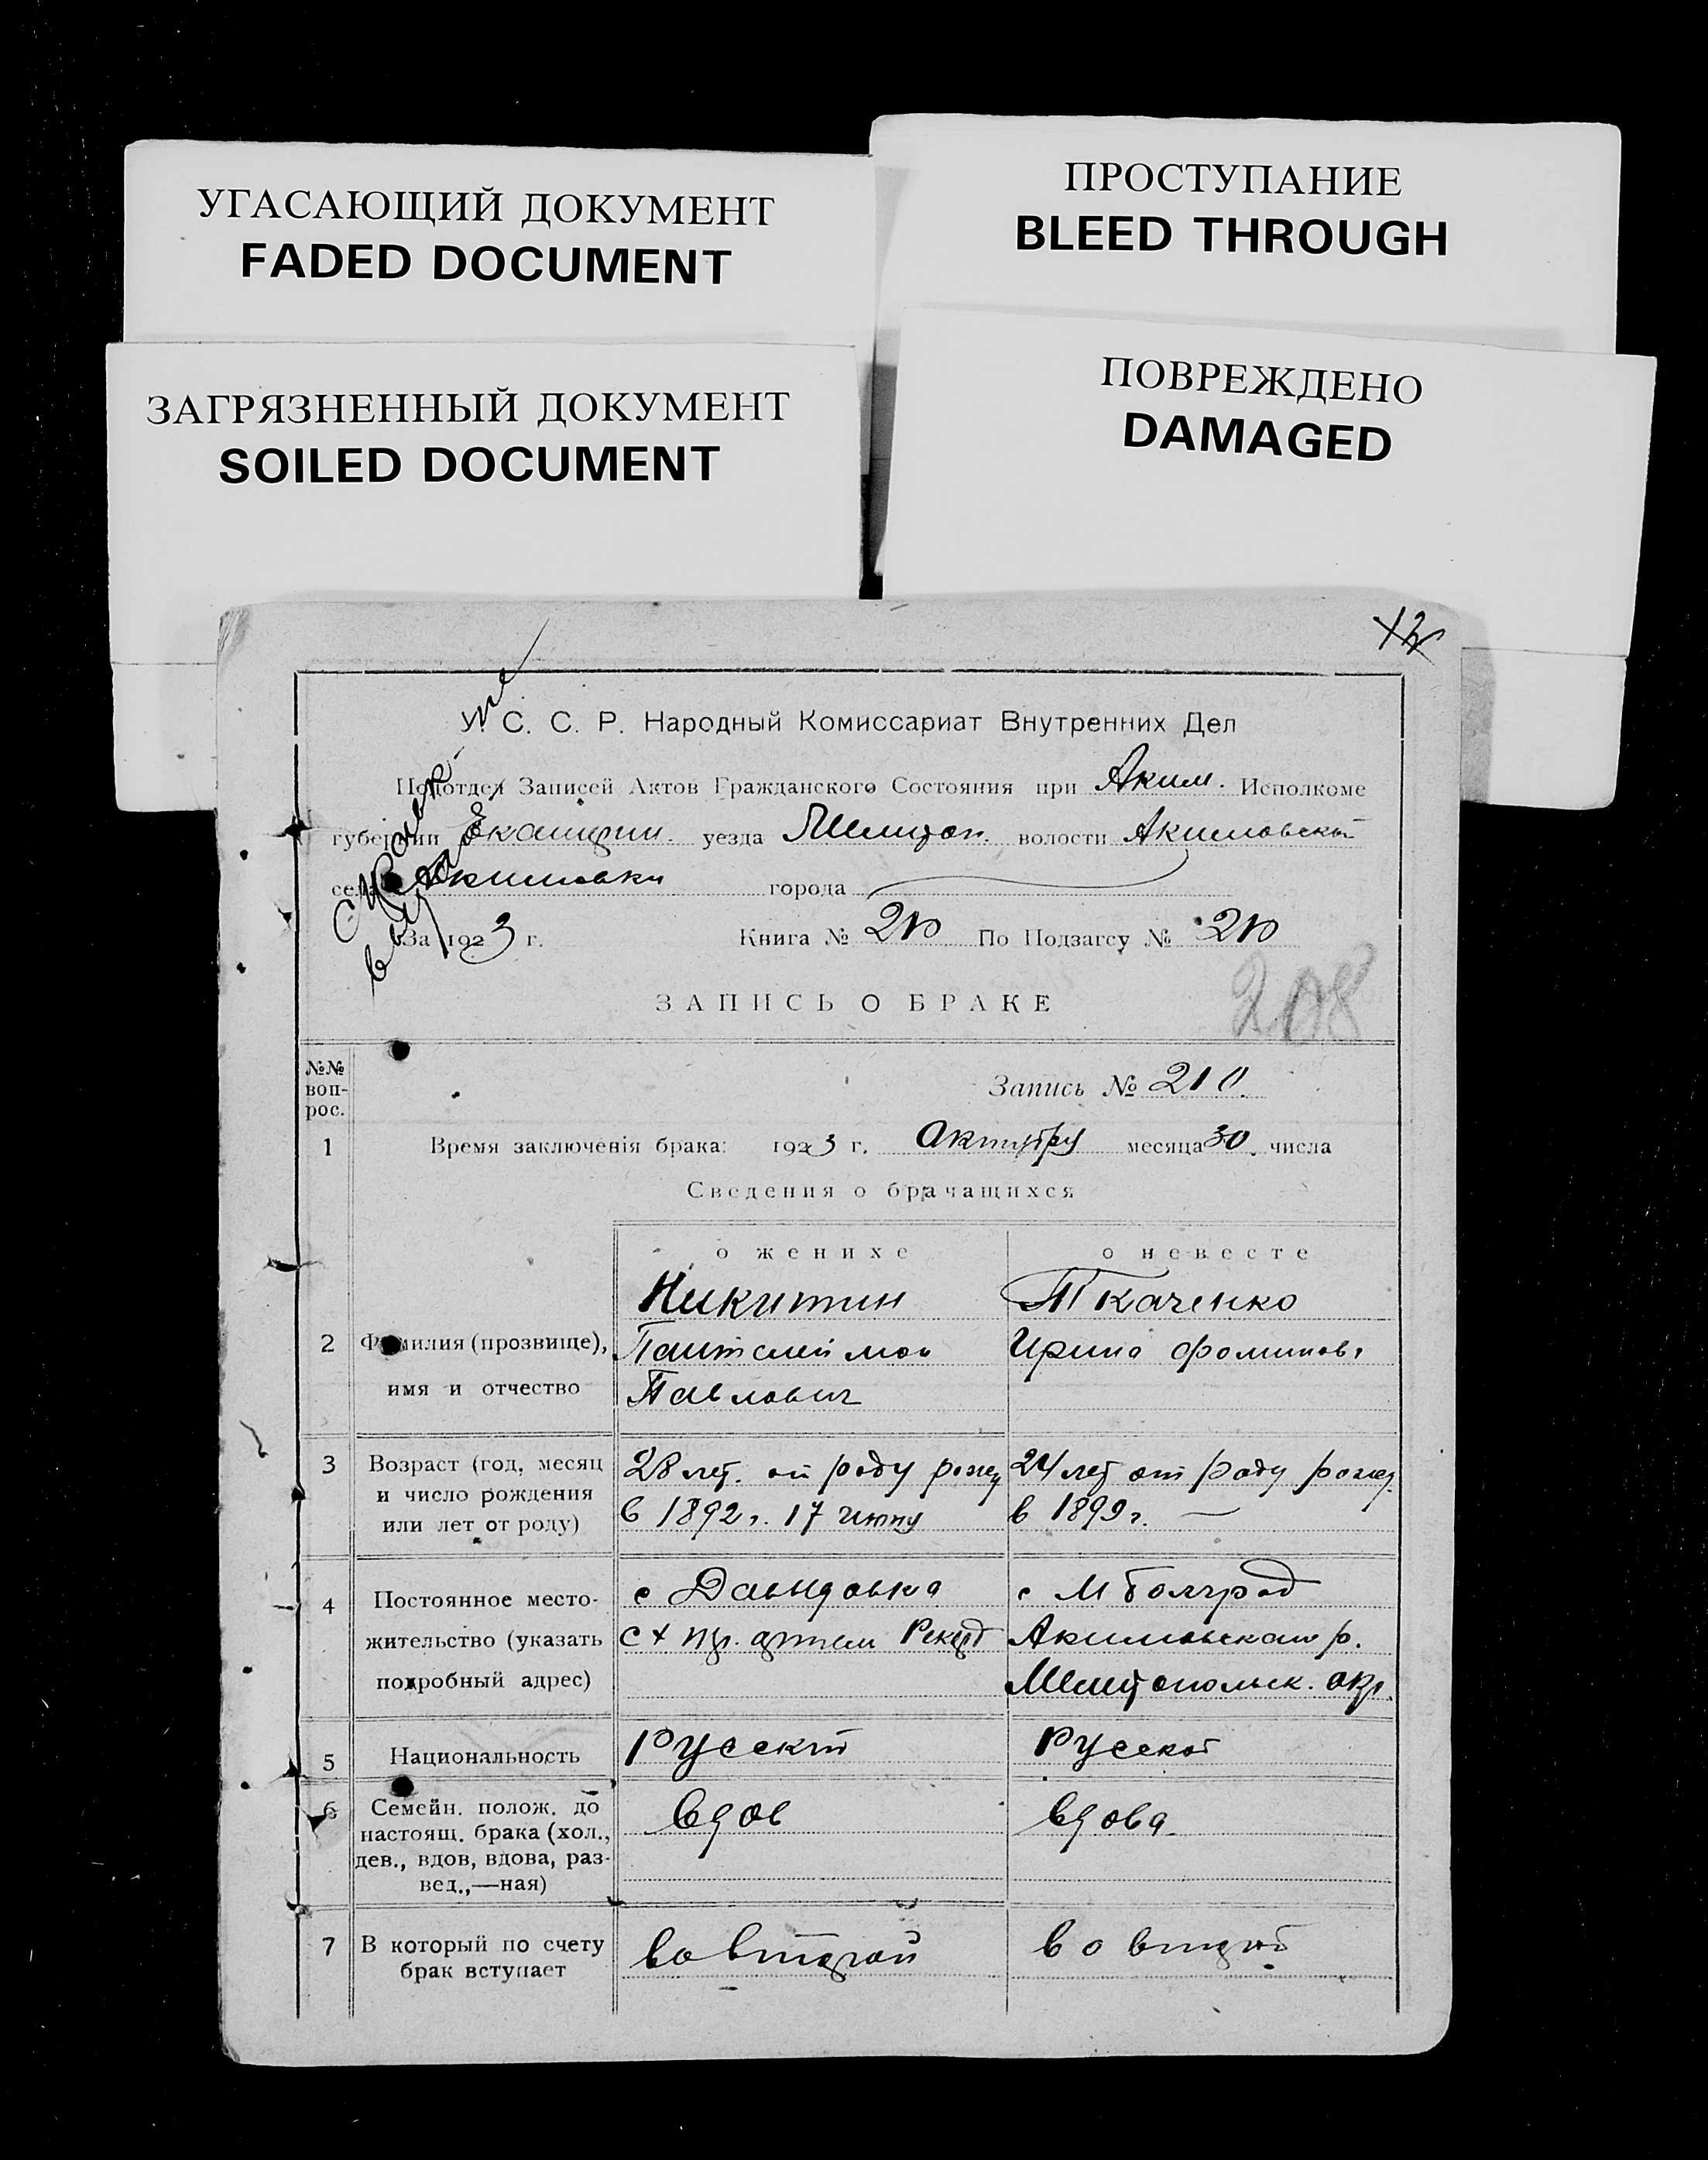 УГАСАЮЩИЙ ДОКУМЕНТ
FADED DOCUMENT
ПРОСТУПАНИЕ
BLEED THROUGH
ЗАГРЯЗНЕННЫЙ ДОКУМЕНТ
SOILED DOCUMENT
ПОВРЕЖДЕНО
DAMAGED
У. С. С. Р. Народный Комиссариат Внутренних Дел
Подотдел Записей Актов Гражданского Состояния при Аким. Исполкоме
губернии уезда волости Акимовской
села Акимовки города
За 1923 г. Книга № 210 По Подзагсу № 210
208
ЗАПИСЬ О БРАКЕ
№№ воп-
рос.
Запись № 210.
1 Время заключенія брака: 1923 г. месяца 30 числа
Сведения о брачащихся
о женихе о невесте
Никитин Ткаченко
2 Фамилия (прозвище), Ирина
имя и отчество Павлович
3 Возраст (год, месяц 28 лет. от роду 24 лет от роду
и число рождения в 1892 г. 17 июну в 1899 г. —
или лет от роду)
с Давидовка с М Болград
4 Постоянное место-
жительство (указать с х Акимовском р.
подробный адрес) Мелитопольск. окр.
5 Национальность Русский Русской
6 Семейн. полож. до Вдов Вдова
настоящ. брака (хол.,
дев., вдов, вдова, раз-
вед.,—ная)
7 В который по счету во второй во второй
брак вступает